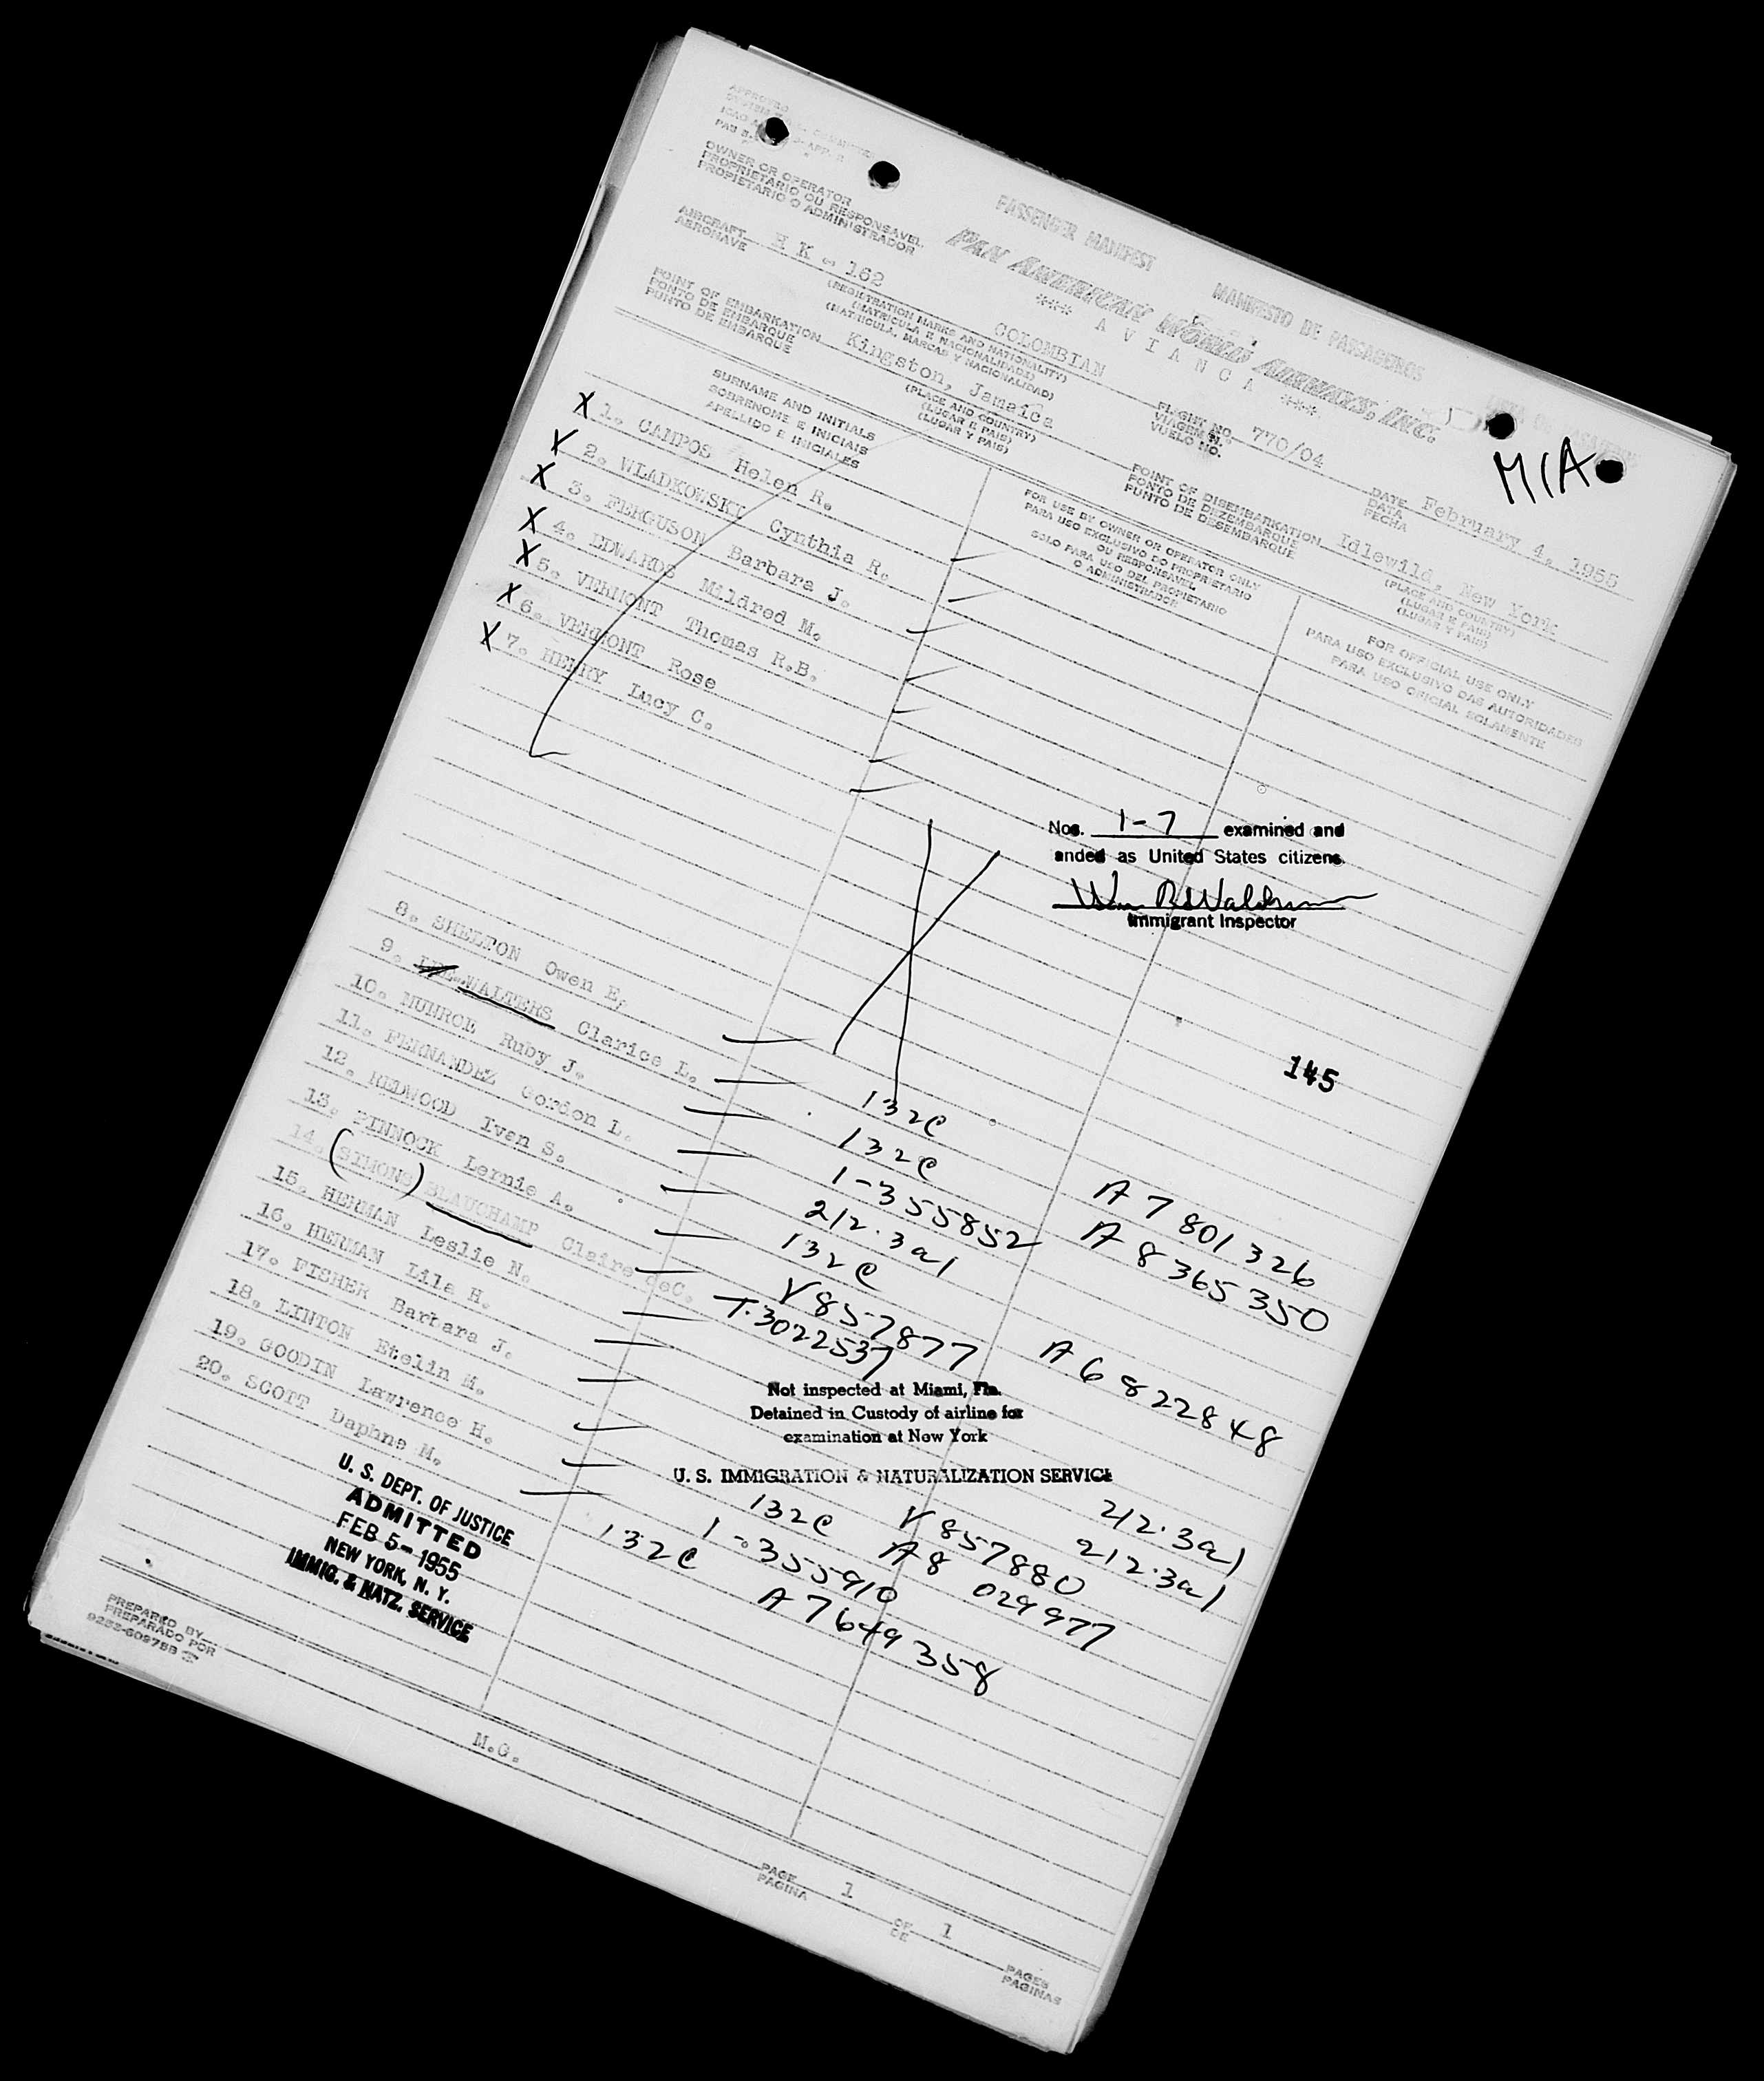 APPROVED
PASSENGER MANIFEST MANIFESTO DE PASSAGEIROS
OWNER OR OPERATOR
PROPRIETARIO OU RESPONSAVEL
PROPIETARIO O ADMINISTRADOR
PAN AMERICAN WORLD AIRWAYS, INC.
*** A V I A N C A ***
MIA
AIRCRAFT
AERONAVE
H K - 162 COLOMBIAN
(REGISTRATION MARKS AND NATIONALITY)
(MATRICULA E NACIONALIDADE)
(MATRICULA, MARCAS Y NACIONALIDAD)
FLIGHT NO.
VIAGEM N.
VUELO NO.
770/04
DATE
DATA
FECHA
February 4, 1955
POINT OF EMBARKATION
PONTO DE EMBARQUE
PUNTO DE EMBARQUE
Kingston, Jamaica
(PLACE AND COUNTRY)
(LUGAR E PAIS)
(LUGAR Y PAIS)
POINT OF DISEMBARKATION
PONTO DE DEZEMBARQUE
PUNTO DE DESEMBARQUE
Idlewild, New York
(PLACE AND COUNTRY)
(LUGAR E PAIS)
(LUGAR Y PAIS)
SURNAME AND INITIALS
SOBRENOME E INICIAIS
APELLIDO E INICIALES
FOR USE BY OWNER OR OPERATOR ONLY
PARA USO EXCLUSIVO DO PROPRIETARIO
OU RESPONSAVEL
SOLO PARA USO DEL PROPIETARIO
O ADMINISTRADOR
FOR OFFICIAL USE ONLY
PARA USO EXCLUSIVO DAS AUTORIDADES
PARA USO OFICIAL SOLAMENTE
X 1. CAMPOS Helen R.
X 2. WLADKOWSKI Cynthia R.
X 3. FERGUSON Barbara J.
X 4. EDWARDS Mildred M.
X 5. VERMONT Thomas R.B.
X 6. VERMONT Rose
X 7. HENRY Lucy C.
Nos. 1-7 examined and
anded as United States citizens.
Immigrant Inspector
145
8. SHELTON Owen E.
9. WALTERS Clarice L.
10. MUNROE Ruby J.
11. FERNANDEZ Gordon L.
12. REDWOOD Iven S.
13. PINNOCK Lernie A.
14. (SIMONS) BLAUCHAMP Claire deC.
15. HERMAN Leslie N.
16. HERMAN Lila H.
17. FISHER Barbara J.
18. LINTON Etelin M.
19. GOODIN Lawrence H.
20. SCOTT Daphne M.
132C
132C A7 801 326
1-355852 A8 365 350
212.3a1
132C
V857877 A6 822848
T.3022537
Not inspected at Miami, Fla.
Detained in Custody of airline for
examination at New York
U. S. IMMIGRATION & NATURALIZATION SERVICE
212.3a1
132C V857880 212.3a1
1-355910 A8 029977
132C A7649358
U. S. DEPT. OF JUSTICE
ADMITTED
FEB 5- 1955
NEW YORK, N. Y.
IMMIG. & NATZ. SERVICE
PREPARED BY
PREPARADO POR
M.G.
PAGE
PAGINA
1
OF
DE
1
PAGES
PAGINAS